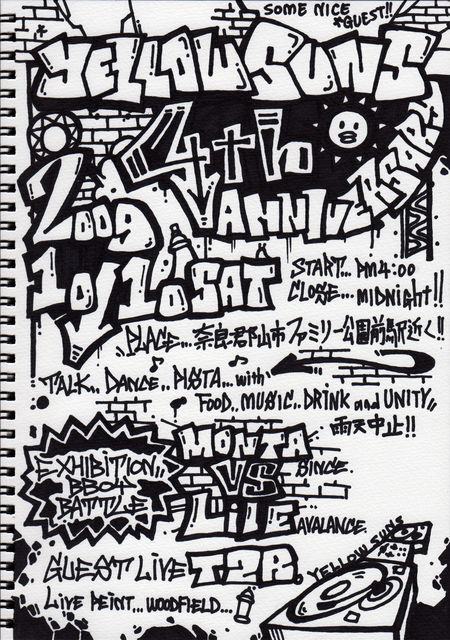 SOME NICE
*GUEST!!
YELLOW SUNS
4th
ANNIVERSARY
2009
10/10.SAT
START... PM4:00
CLOSE... MIDNIGHT!!
PLACE... 奈良・郡山市ファミリー公園前駅近く!!
TALK.. DANCE.. PISTA... with
FOOD.. MUSIC.. DRINK and UNITY,,
雨天中止!!
EXHIBITION,,
BBOY
BATTLE
MONTA
SINCE.
VS
LiLE
AVALANCE.
GUEST LIVE T2R.
YELLOW SUNS
LIVE PEINT... WOODFIELD...